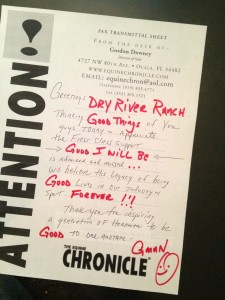 ATTENTION!
FAX TRANSMITTAL SHEET
FROM THE DESK OF
Gordon Downey
4727 NW 80TH AVE. • OCALA, FL 34482
WWW.EQUINECHRONICLE.COM
EMAIL: equinechron@aol.com
Greetings DRY RIVER RANCH
Thinking Good Things of You
guys TODAY - Appreciate
the First Class Support
Good I WILL BE
is admired and missed ...
we believe the Legacy of being
GOOD Lives in our Industry
Spot FOREVER !!!
Thank you for inspiring
a generation of Horsemen to be
GOOD to one another.
GMAN
THE EQUINE
CHRONICLE